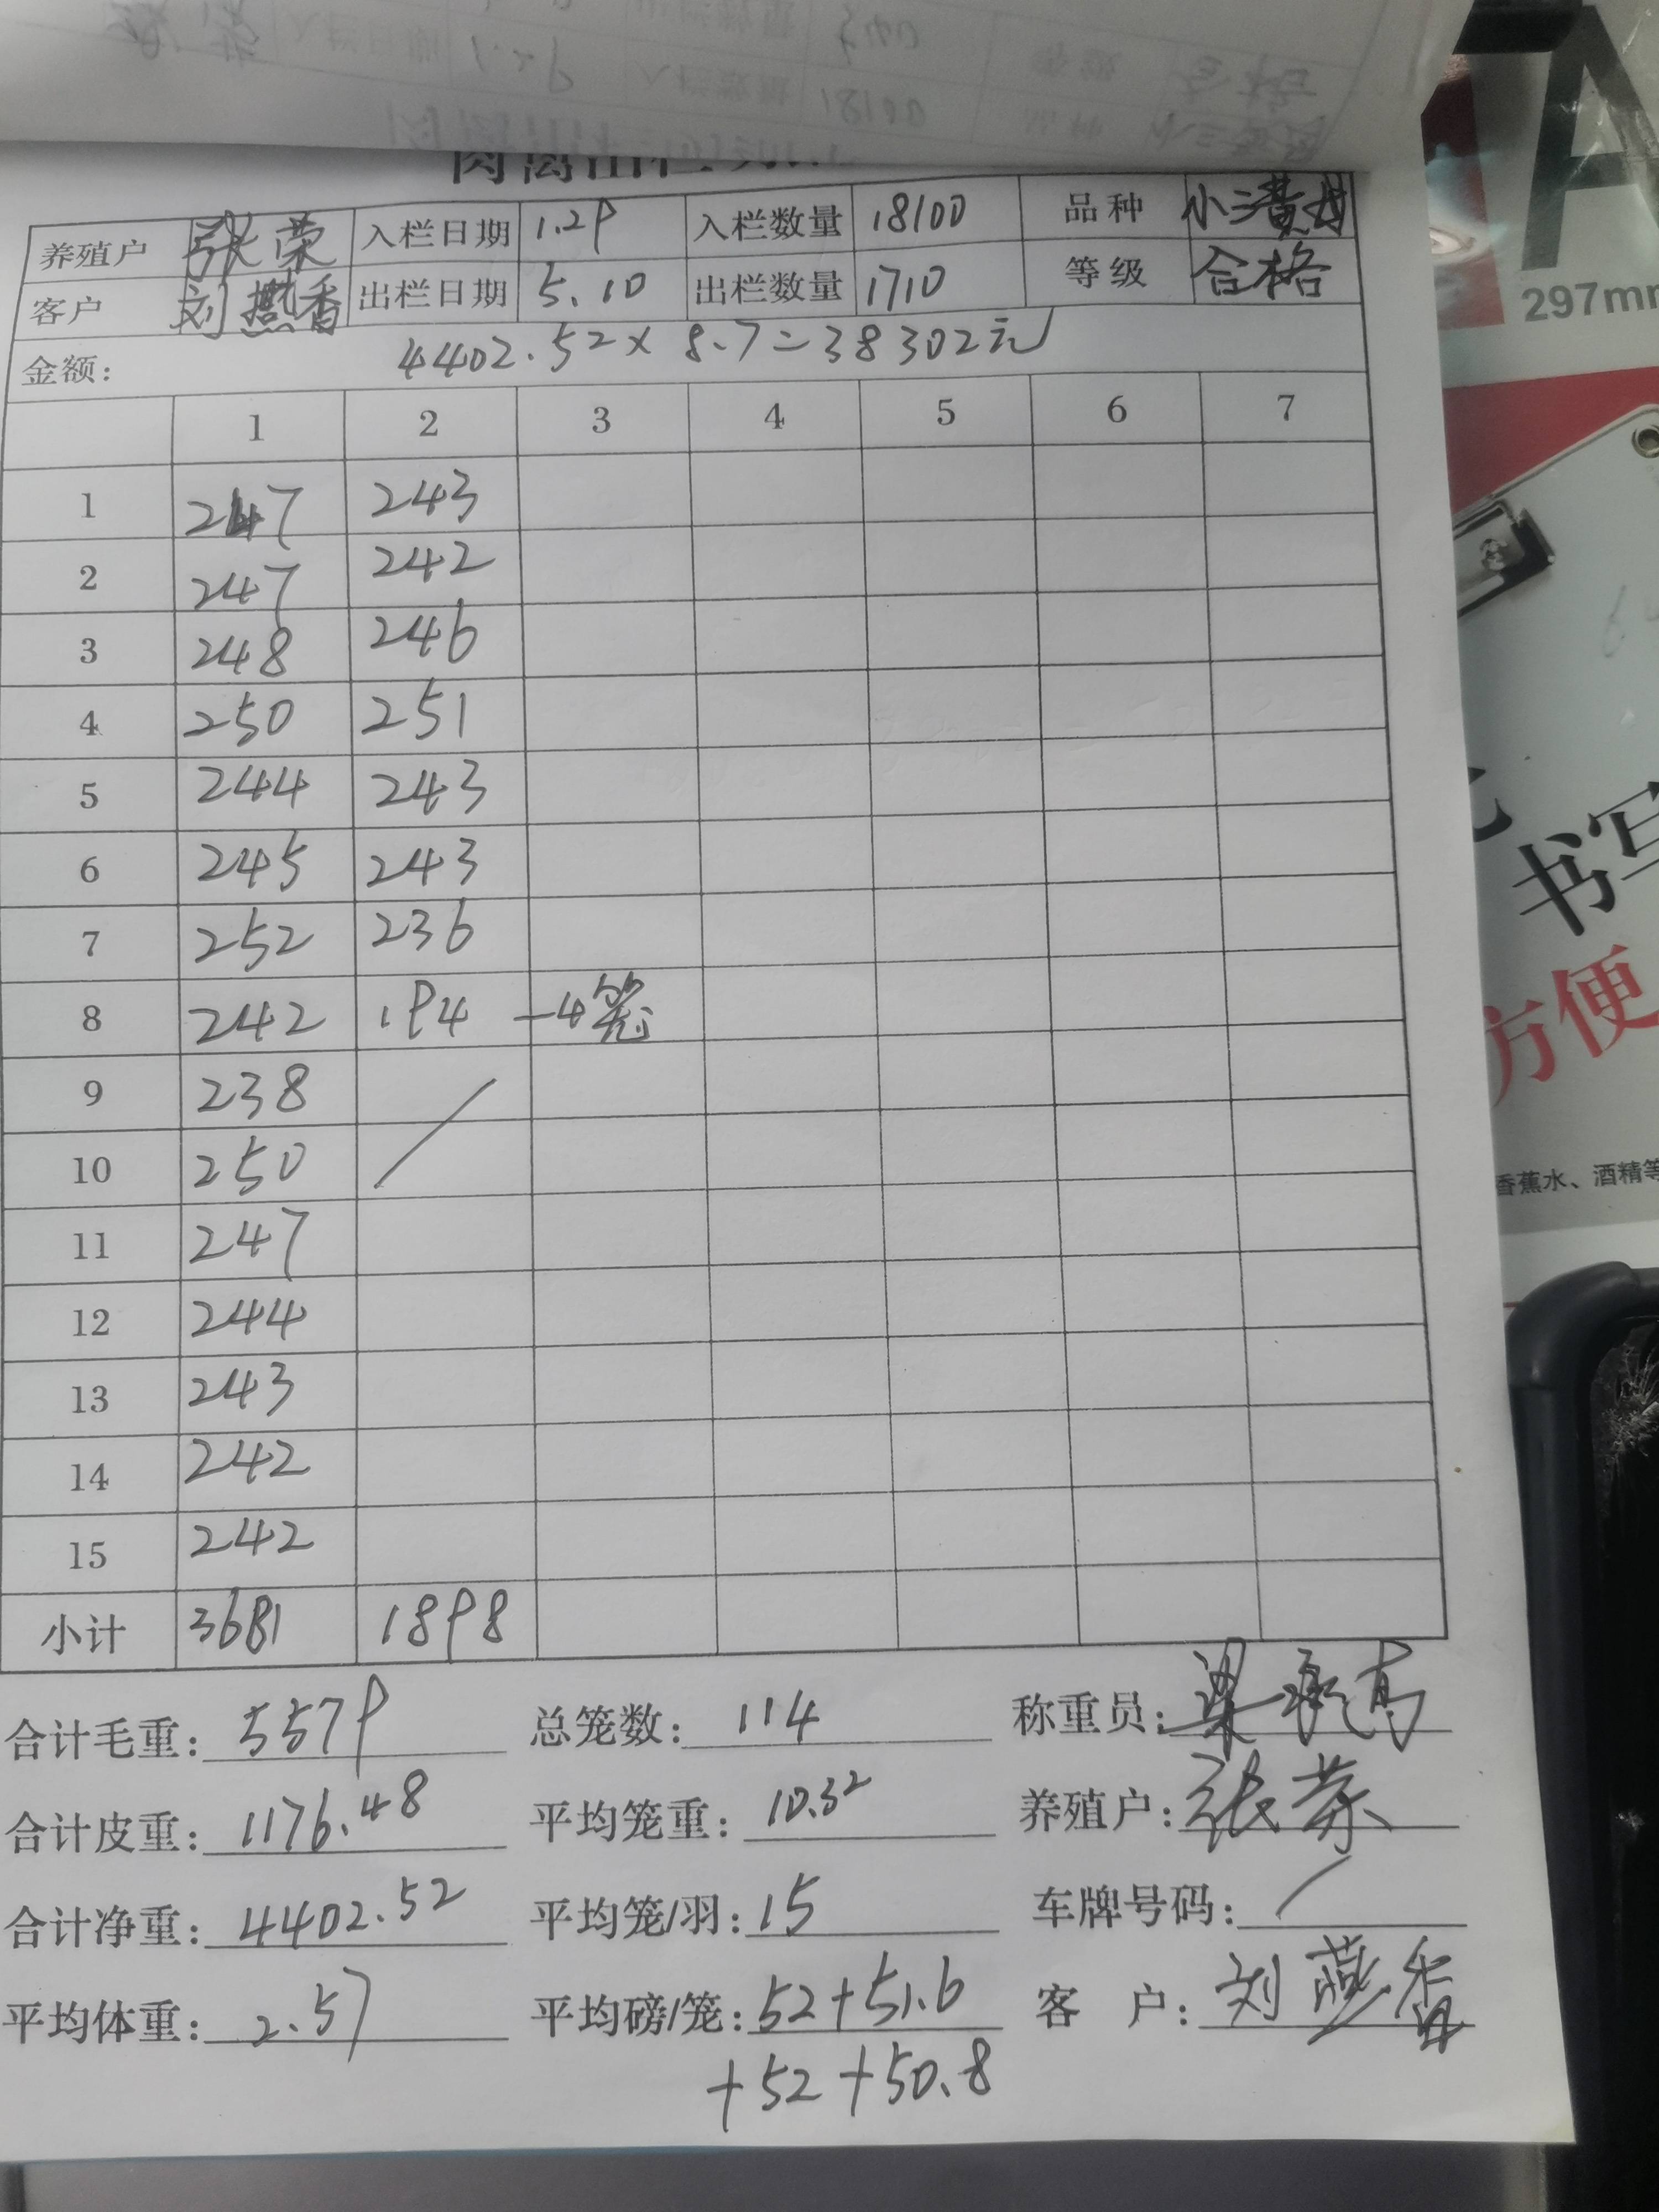 肉禽出栏
养殖户 张荣 入栏日期 1.29 入栏数量 18100 品种 小三黄母
客户 刘燕香 出栏日期 5.10 出栏数量 1710 等级 合格
金额: 4402.52×8.7=38302元
1 2 3 4 5 6 7
1 247 243
2 247 242
3 248 246
4 250 251
5 244 243
6 245 243
7 252 236
8 242 194 -4笼
9 238
10 250
11 247
12 244
13 243
14 242
15 242
小计 3681 1898
合计毛重: 5579 总笼数: 114 称重员:
合计皮重: 1176.48 平均笼重: 10.32 养殖户: 张荣
合计净重: 4402.52 平均笼/羽: 15 车牌号码: /
平均体重: 2.57 平均磅/笼: 52+51.6 客 户: 刘燕香
+52+50.8
A
297mm
书写
方便
香蕉水、酒精等